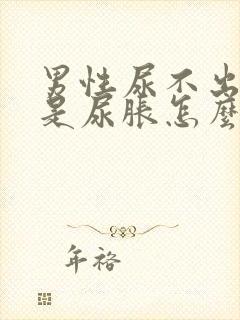 男性尿不出
是尿脹怎麼
年袼